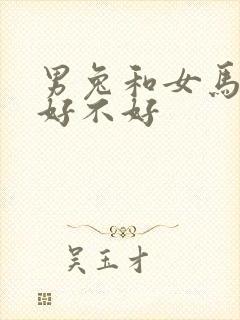 男兔和女馬
好不好
吴玉才